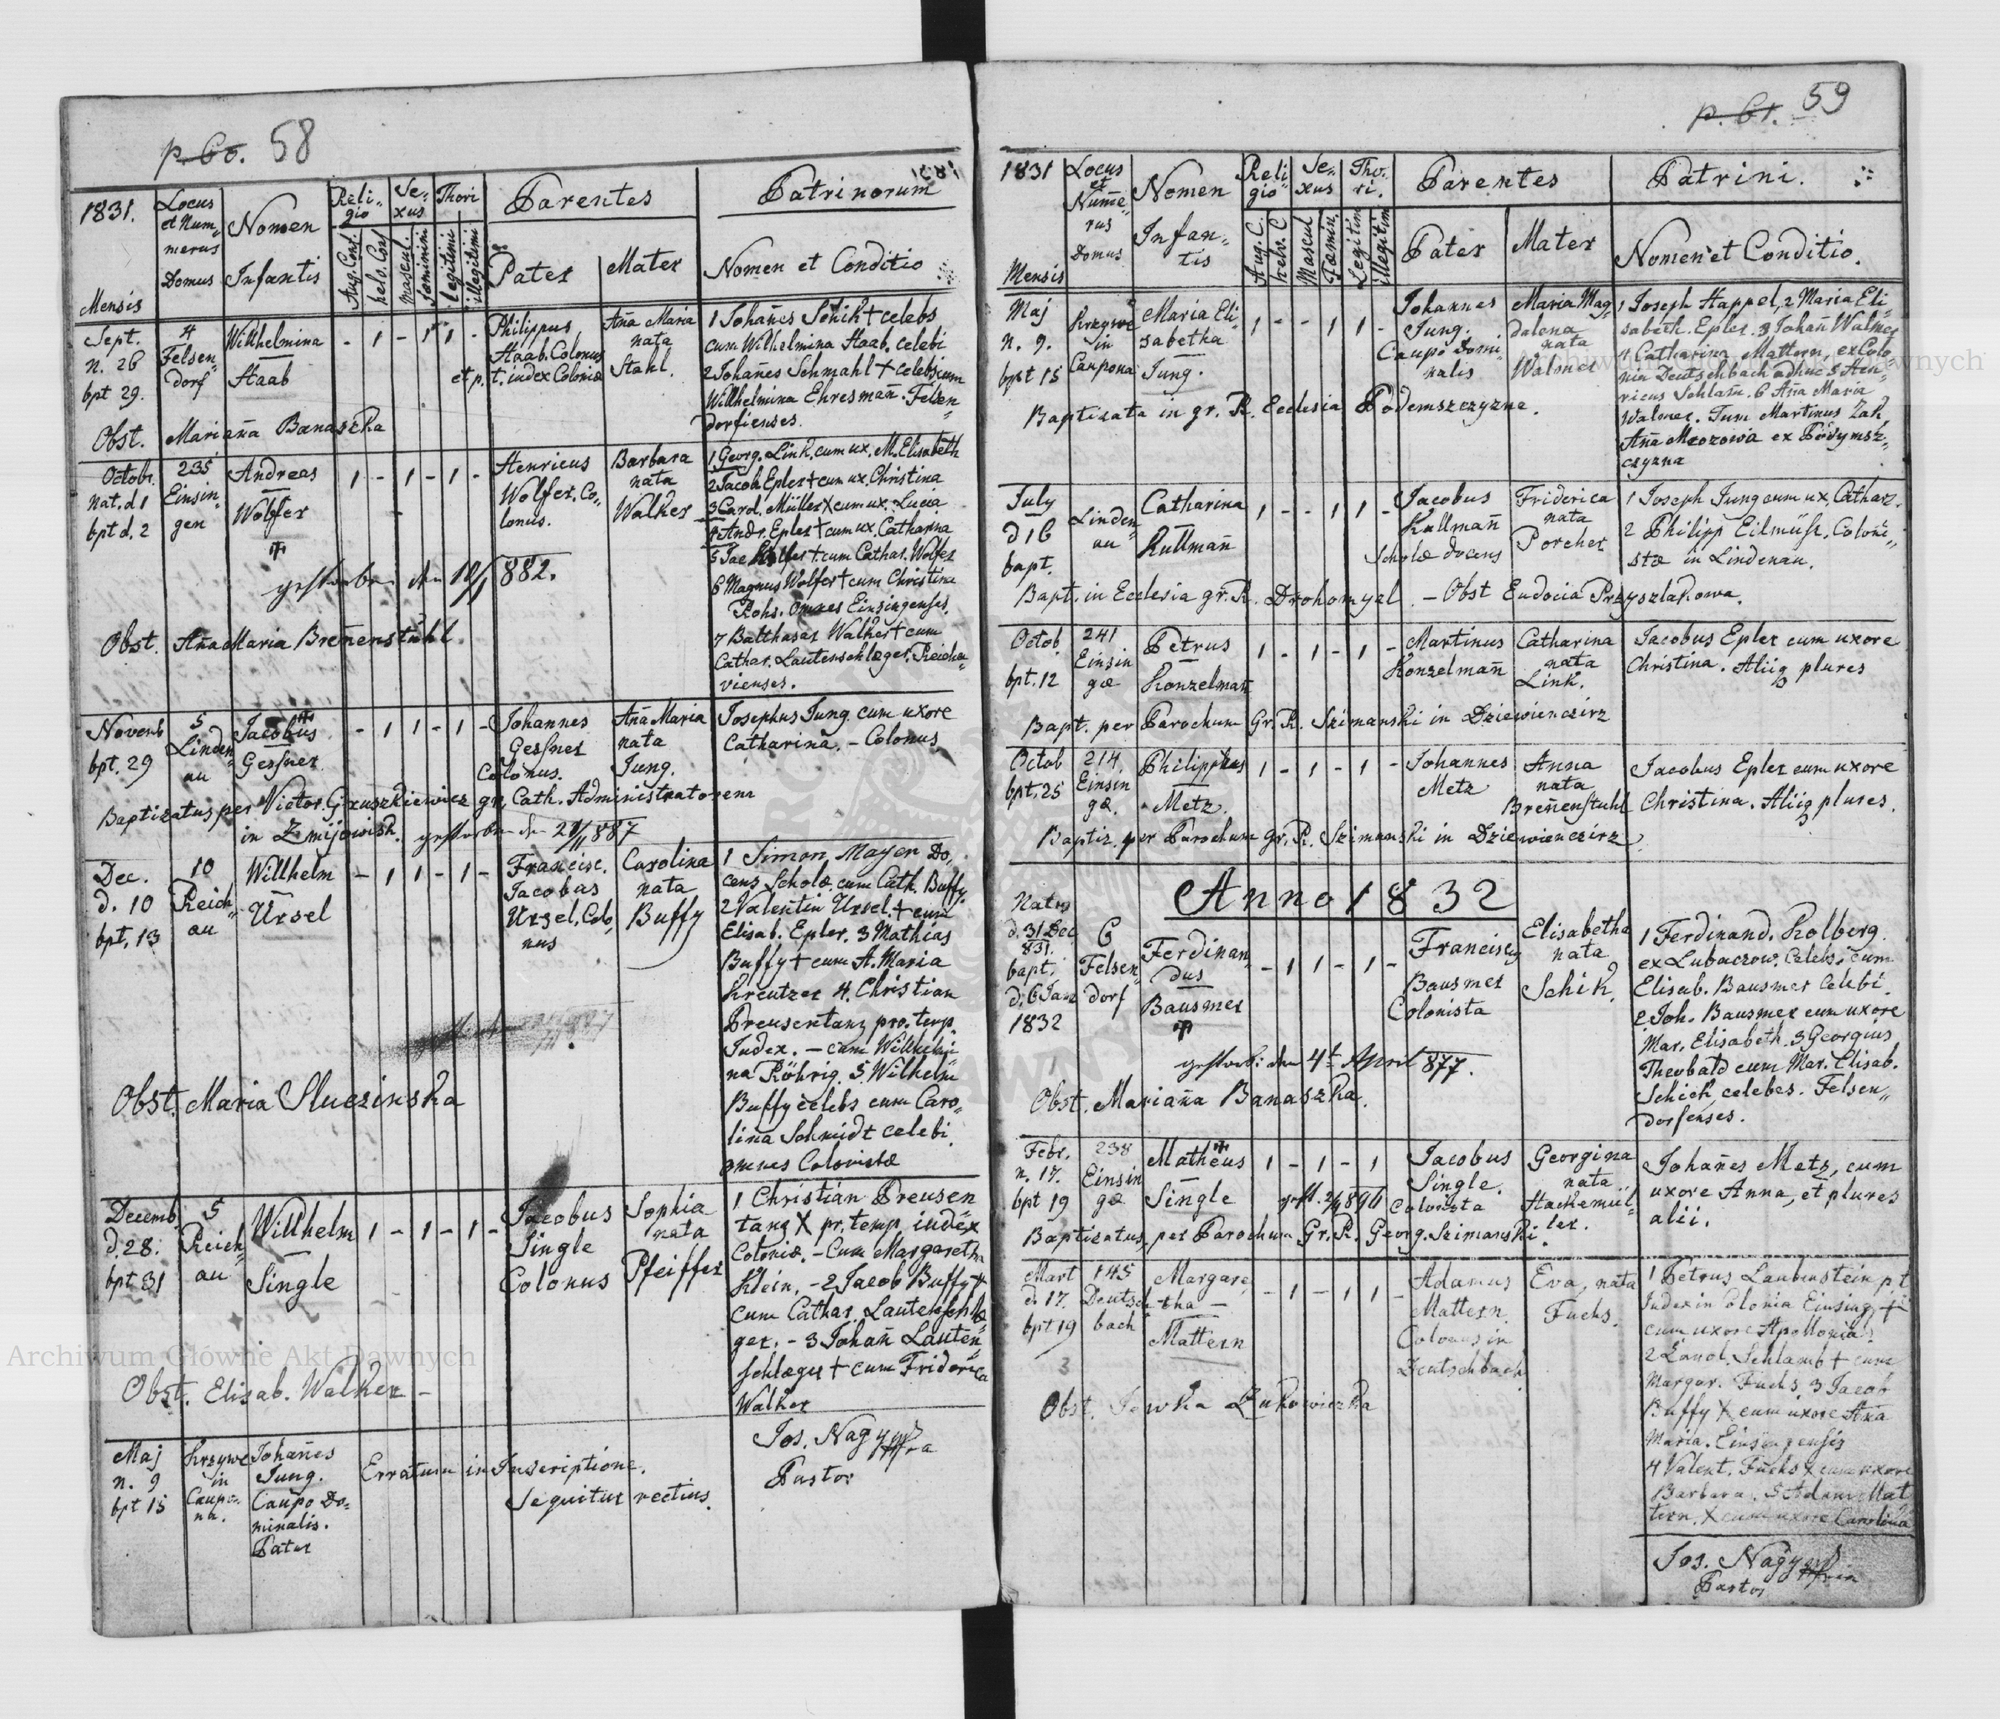 p. 60. 58
1831.
Locus et Nummerus Domus
Nomen Infantis
Religio
Sexus
Thori
Parentes
Patrinorum
1831
Mensis
Aug. Conf.
helv. Conf
mascul.
feminini
legitimi
illegitimi
Pater
Mater
Nomen et Conditio
Sept.
n. 26
bpt 29.
4
Felsen
dorf
Willhelmina
Haab
- 1 - 1 1 -
Philippus
Haab. Colonus
et p. t. index Coloniæ
Aña Maria
nata
Stahl.
1 Johañes Schik + celebs
cum Wilhelmina Haab. celebi
2 Johañes Schmahl + celebs cum
Willhelmina Ehresmañ. Felsen
dorfienses.
Obst. Mariaña Banaszka
Octobr.
nat. d 1
bpt d. 2
235
Einsin
gen
Andreas
Wolfer
1 - 1 - 1 -
Henricus
Wolfer. Co-
lonus.
Barbara
nata
Walker
1 Georg. Link. cum ux. M. Elisabeth
2 Jacob Epler + cum ux. Christina
3 Carol. Müller X cum ux. Lucia
4 Andr. Epler + cum ux. Catharina
5 Jac Wolfer + cum Cathar. Wolfer
6 Magnus Wolfer + cum Christina
Rohs. omnes Einsingenses.
7 Balthasar Walker + cum
Cathar. Lautenschlæger. Reicha
vienses.
gestorben den 10/1 882.
Obst. Aña Maria Breñenstuhl.
Novemb
bpt. 29
5
Linden
au
Jacobus
Gessner
- 1 1 - 1 -
Johannes
Gessner
Colonus.
Aña Maria
nata
Jung.
Josephus Jung. cum uxore
Catharina. - Colonus
Baptizatus per Victor. Gruszkiewicz gr. Cath. Administratorem
in Zmijowisk. gestorben den 21/11 887
Dec.
d. 10
bpt. 13
10
Reich
au
Willhelm
Ursel
- 1 1 - 1 -
Francisc.
Jacobus
Ursel. Colo
nus
Carolina
nata
Buffy
1 Simon Mayer Do-
cens Scholæ cum Cath. Buffy.
2 Valentin Ursel. + cum
Elisab. Epler. 3 Mathias
Buffy + cum A. Maria
Kreutzer 4. Christian
Preusentanz pro. temp.
Judex. - cum Willhelmi
na Röhrig. 5. Wilhelm
Buffy celebs cum Caro-
lina Schmidt celebi.
omnes Colonistæ
Obst. Maria Sluczinska
Decemb
d. 28.
bpt 31
5
Reich
au
Willhelm
Single
1 - 1 - 1 -
Jacobus
Single
Colonus
Sophia
nata
Pfeiffer
1 Christian Preusen
tanz X pr. temp. index
Coloniæ. - Cum Margaretha
Klein. - 2 Jacob Buffy +
cum Cathar. Lautenschlæ
ger. - 3 Johañ Lauten
schlæger + cum Friderica
Walker
Obst. Elisab. Walker -
Maj
n. 9
bpt 15
Krzywe
in
Caupo-
na.
Johañes
Jung.
Caupo Do-
minalis.
Pater
Erratum in Inscriptione.
Sequitur rectius.
Jos. Nagy
Pastor
p. 61. 59
1831
Mensis
Locus et Numerus Domus
Nomen Infantis
Religio
Sexus
Thori.
Parentes
Patrini.
Aug. C.
helv. C
Mascul
Fœmin.
Legitim
illegitim
Pater
Mater
Nomen et Conditio.
Maj
n. 9.
bpt 15
Krzywe
in
Caupona
Maria Eli-
sabetha
Jung.
1 - - 1 1 -
Johannes
Jung.
Caupo Domi-
nalis
Maria Mag-
dalena
nata
Walner
1 Joseph Happel, 2 Maria Eli-
sabeth. Epler. 3 Johañ Walner
4 Catharina Mattern, ex Colo
nia Deutschbach adhuc 5 Hen-
ricus Schlañ. 6 Aña Maria
Walner. Tum Martinus Zak
Aña Mrozowia ex Podymsz-
czyzna
Baptizata in gr. R. Ecclesia Podemszczyzna.
July
d 16
bapt.
Linden
au
Catharina
Kullmañ
1 - - 1 1 -
Jacobus
Kullmañ
Scholæ docens
Friderica
nata
Porcher
1 Joseph Jung cum ux. Cathar.
2 Philipp Eilmüsz. Coloni-
stæ in Lindenau.
Bapt. in Ecclesia gr. R. Drohomysl. - Obst Eudocia Przyszlakowa.
Octob.
bpt. 12
241
Einsin
gæ
Petrus
Konzelmañ
1 - 1 - 1 -
Martinus
Konzelmañ
Catharina
nata
Link.
Jacobus Epler cum uxore
Christina. Aliiq plures
Bapt. per Parochum Gr. R. Szimanski in Dziewiencirz
Octob
bpt. 25
214.
Einsin
gæ
Philippus
Metz.
1 - 1 - 1 -
Johannes
Metz
Anna
nata
Breñenstuhl
Jacobus Epler cum uxore
Christina. Aliiq plures.
Baptiz. per Parochum gr. R. Szimanski in Dziewienczirz.
Anno 1832
Natus
d. 31 Dec
831.
bapt.
d. 6 Jan
1832
6
Felsen
dorf
Ferdinan
dus
Bausmer
- 1 1 - 1 -
Franciscq
Bausmer
Colonista
Elisabetha
nata
Schik.
1 Ferdinand. Kolberg.
ex Lubaczow. Celebs. cum
Elisab. Bausmer Celebi.
2 Joh. Bausmer cum uxore
Mar. Elisabeth. 3 Georgius
Theobald cum Mar. Elisab.
Schick, celebes. Felsen
dorfenses.
gestorb: den 4t April 877.
Obst. Mariaña Banaszka.
Febr.
n. 17.
bpt 19
238
Einsin
gæ
Matheus
Single
1 - 1 - 1
Jacobus
Single.
Colonista
Georgina
nata
Hackemül-
ler.
Johañes Metz, cum
uxore Anna, et plures
alii.
Baptizatus per Parochum Gr. R. Georg. Szimanski.
Mart
d. 17.
bpt 19
3
145
Deutsch
bach
Margare
tha -
Mattern
- 1 - 1 1 -
Adamus
Mattern.
Colonus in
Deutschbach
Eva, nata
Fuchs.
1 Petrus Laubenstein p. t
Judex in Colonia Einsing +
cum uxore Apollonia.
2 Schlamb + cum
Margar. Fuchs. 3 Jacob
Buffy X cum uxore Aña
Maria. Einsingensis
4 Valent. Fuchs X cum uxore
Barbara. 5 Adam Mat
tern. X cum uxore Carolina
Obst. Jewka Zukowiczka
Jos. Nagy
Pastor
Archiwum Główne Akt Dawnych